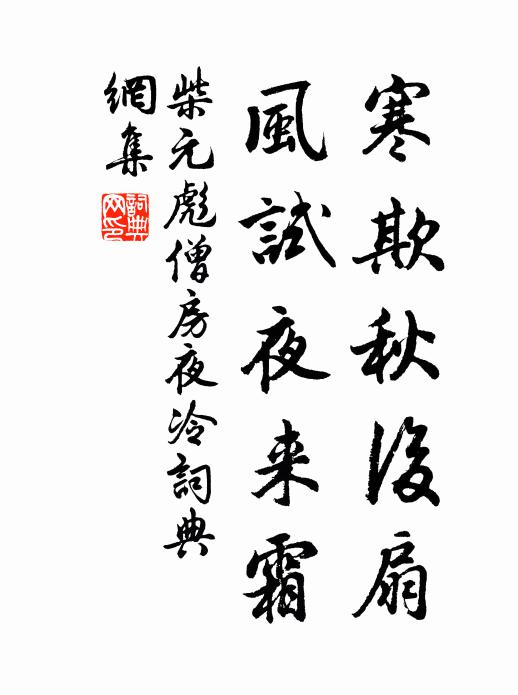 寒欺秋後扇
風試夜来霜
柴元彪僧房夜冷詞典
網集
詞典网印